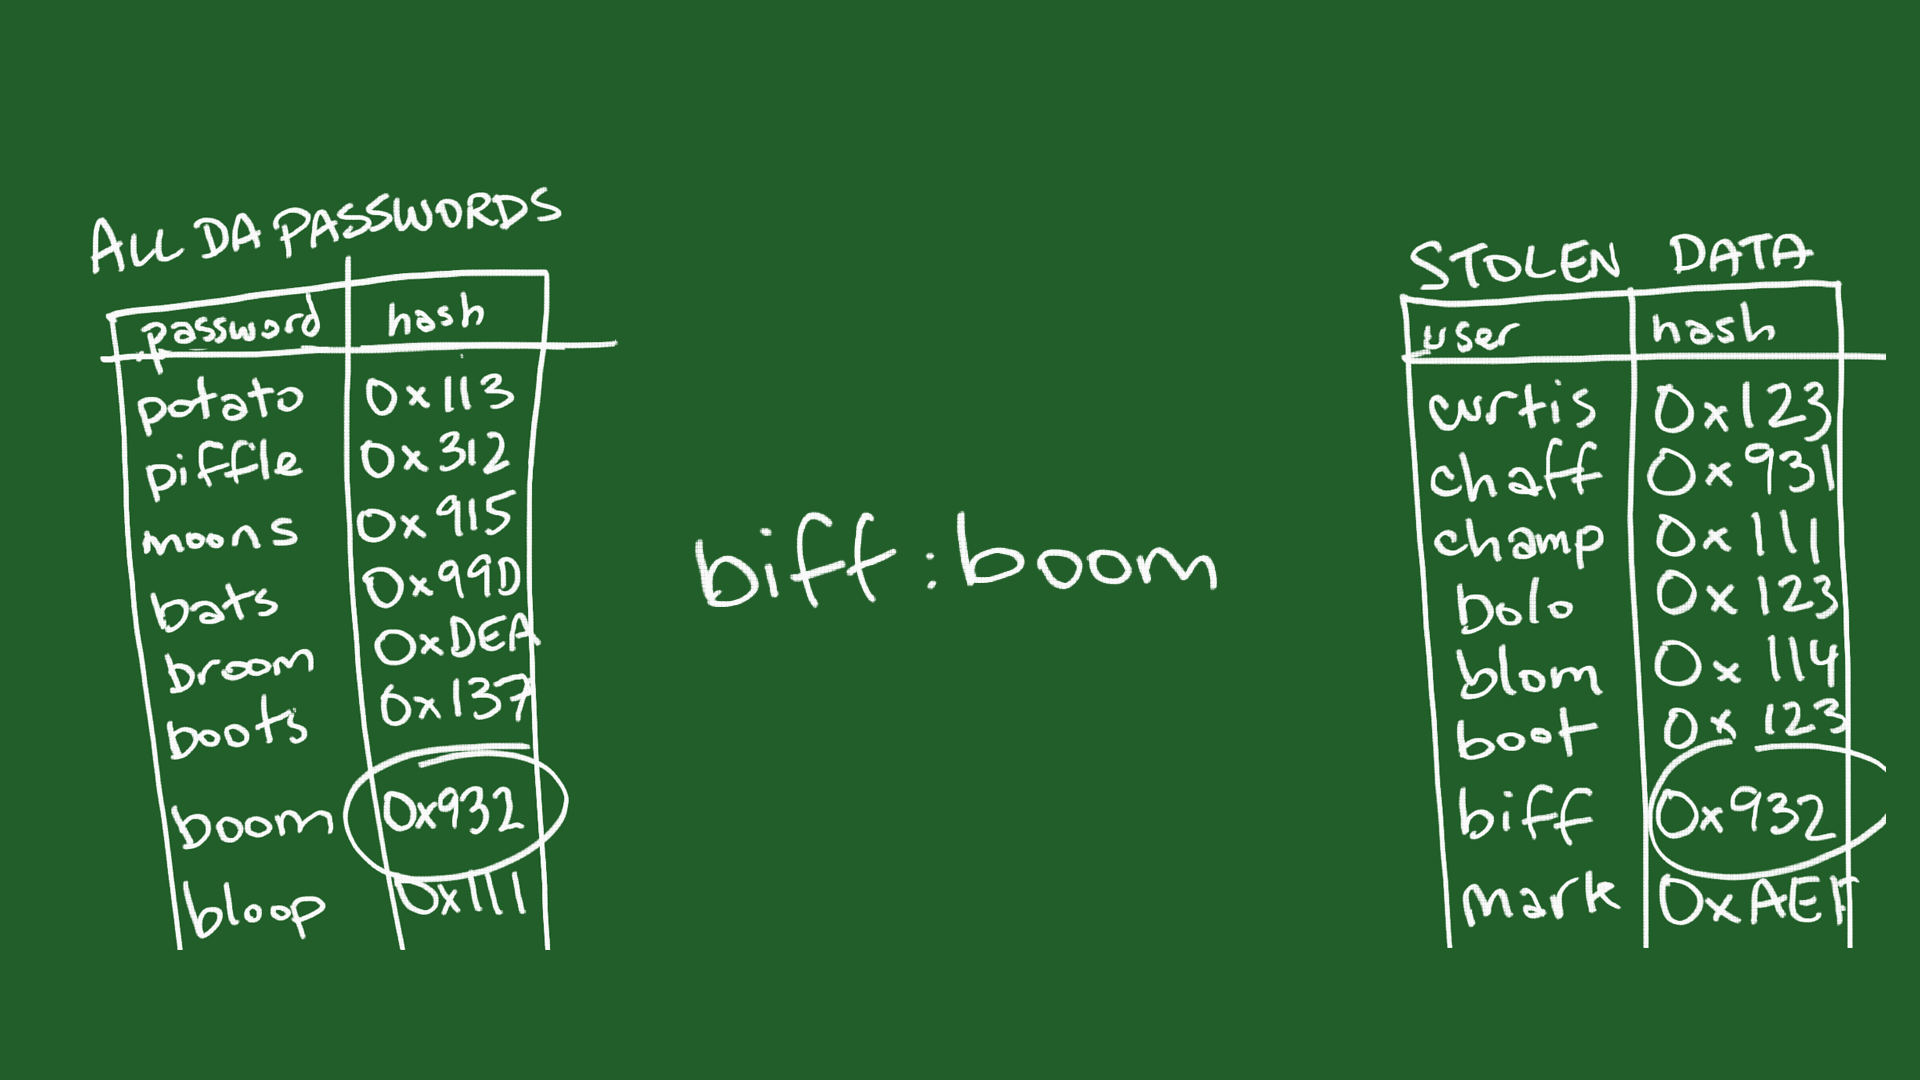 ALL DA PASSWORDS
password hash
potato 0x113
piffle 0x312
moons 0x915
bats 0x99D
broom 0xDEA
boots 0x137
boom 0x932
bloop 0x111
biff:boom
STOLEN DATA
user hash
curtis 0x123
chaff 0x931
champ 0x111
bolo 0x123
blom 0x114
boot 0x123
biff 0x932
mark 0xAEF